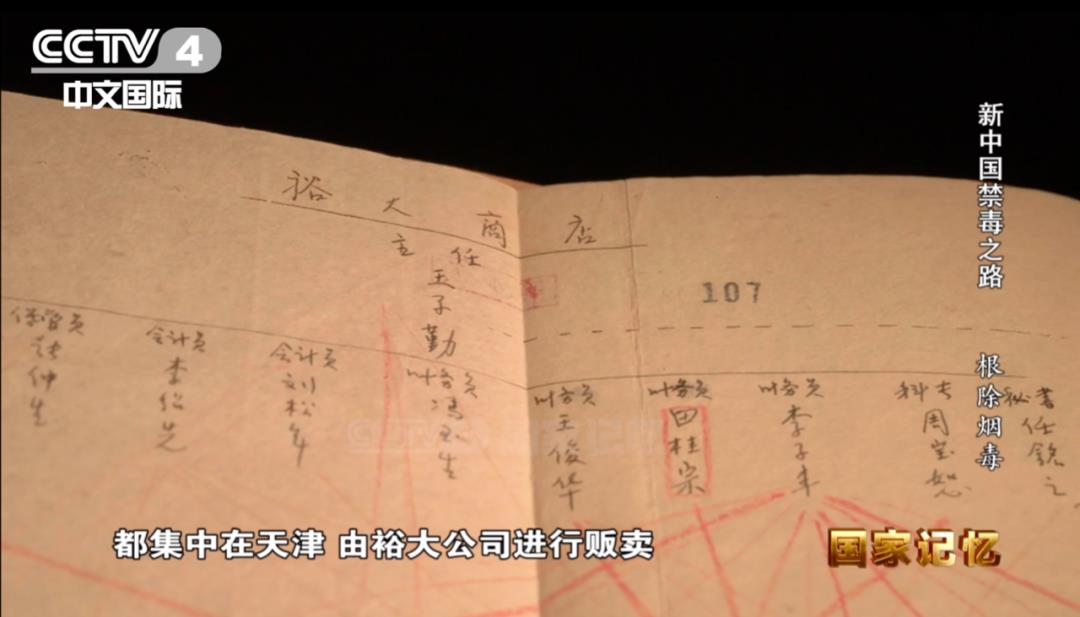 CCTV 4
中文国际
新中国禁毒之路 根除烟毒
裕大商店
主任
王子勤
107
保管员
仲生
会计员
李绍先
会计员
刘松年
业务员
冯玉生
业务员
王俊华
业务员
田桂宗
业务员
李子丰
科长
周宝恕
秘书
任铭之
都集中在天津 由裕大公司进行贩卖
国家记忆